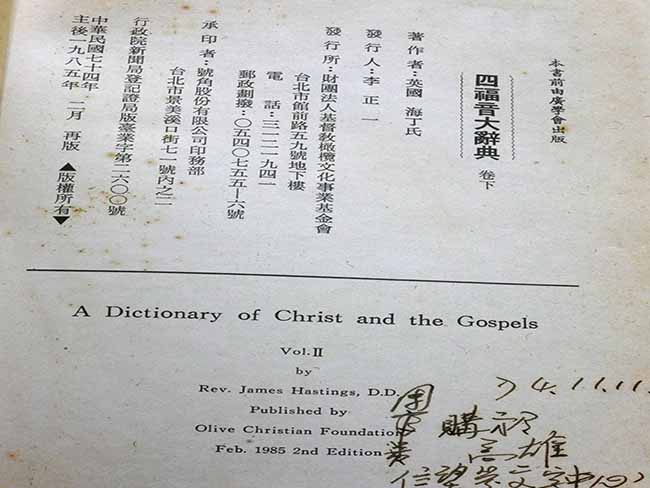 本書前由廣學會出版
四福音大辭典 卷下
著作者：英國 海丁氏
發行人：李正一
發行所：財團法人基督教橄欖文化事業基金會
台北市館前路五九號地下樓
電話：三一一二九四一
郵政劃撥：〇五四〇七五五—六號
承印者：號角股份有限公司印務部
台北市景美溪口街七一號內之二
行政院新聞局登記證局版臺業字第二六〇〇號
中華民國七十四年
主後一九八五年 二月 再版
▲版權所有▼
A Dictionary of Christ and the Gospels
Vol. II
by
Rev. James Hastings, D.D.
Published by
Olive Christian Foundation
Feb. 1985 2nd Edition
74.11.11.
購於
高雄
信望愛文字中心